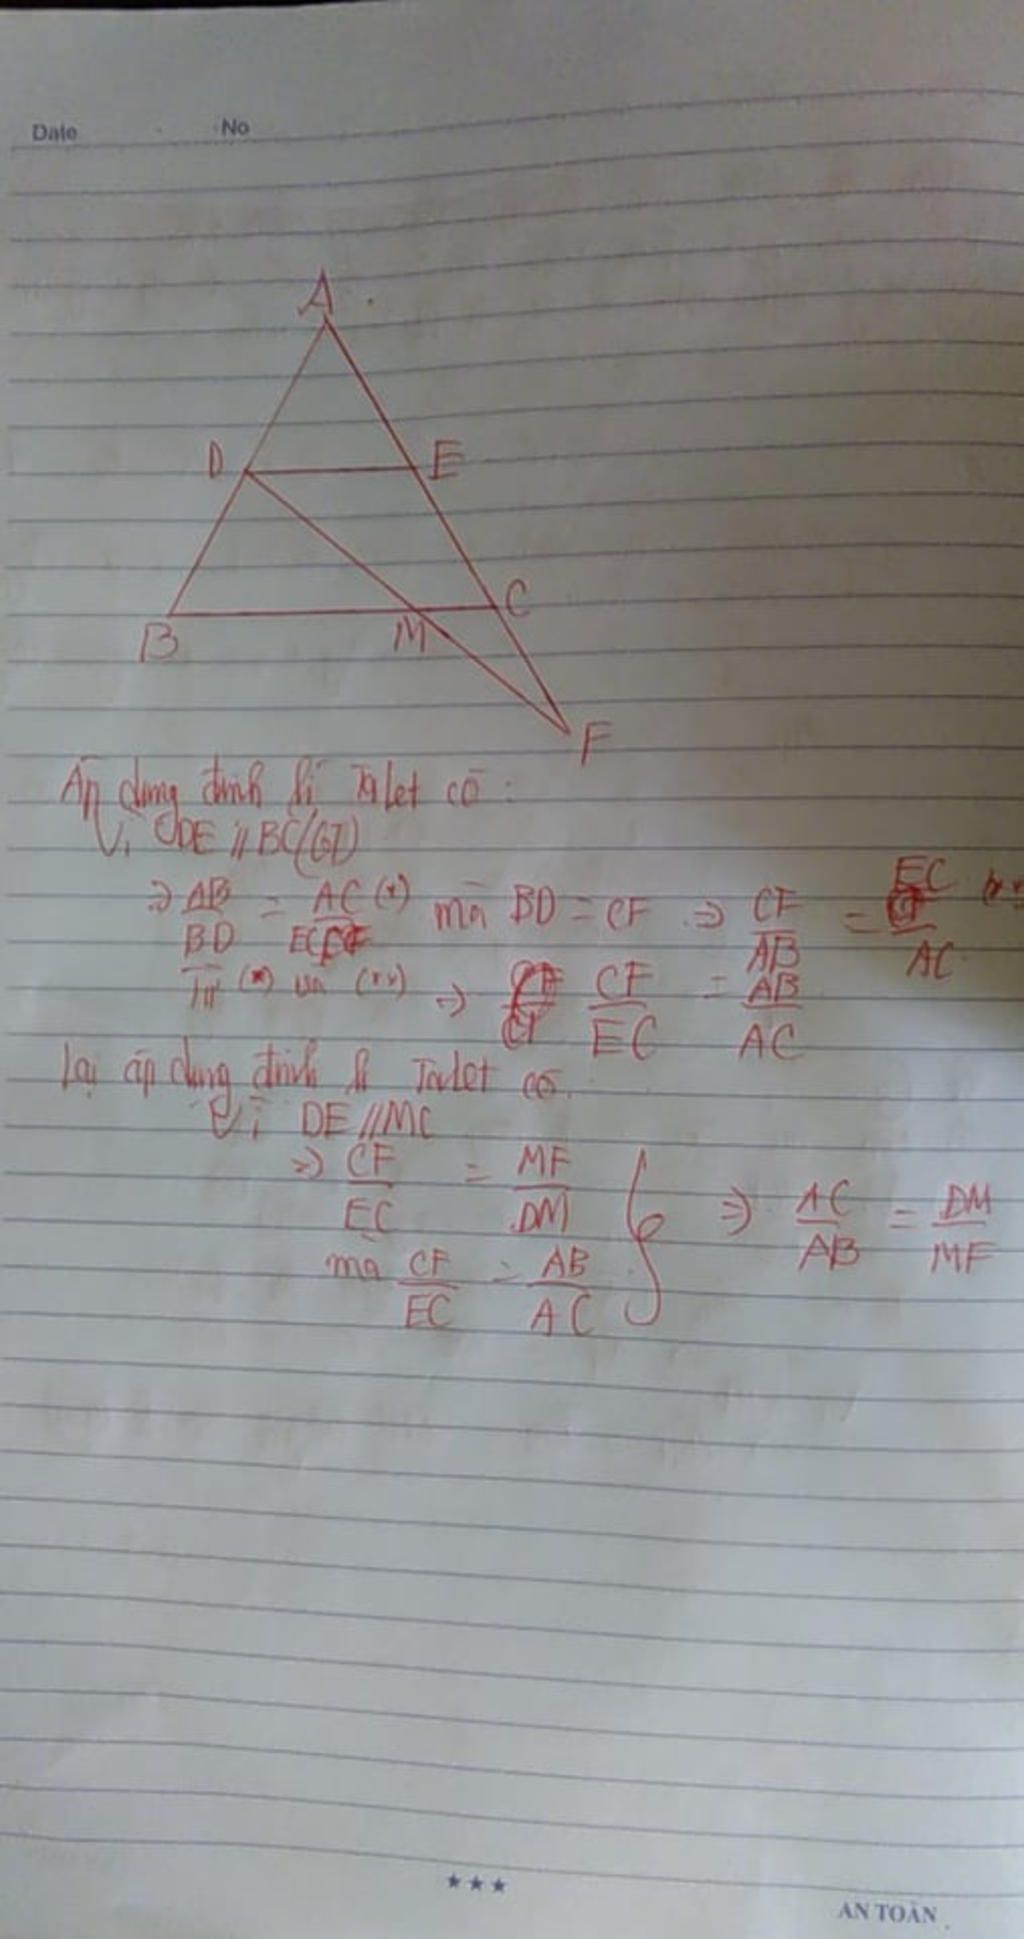 Date No
A
D E
B M C
F
Áp dụng định lí Talet có :
Vì DE // BC (GT)
=> AB/BD = AC/EC (*) mà BD = CF => CF/AB = EC/AC
Từ (*) và (**) => CF/EC = AB/AC
Lại áp dụng định lí Talet có
Vì DE // MC
=> CF/EC = MF/DM
mà CF/EC = AB/AC } => AC/AB = DM/MF
★★★
AN TOÀN